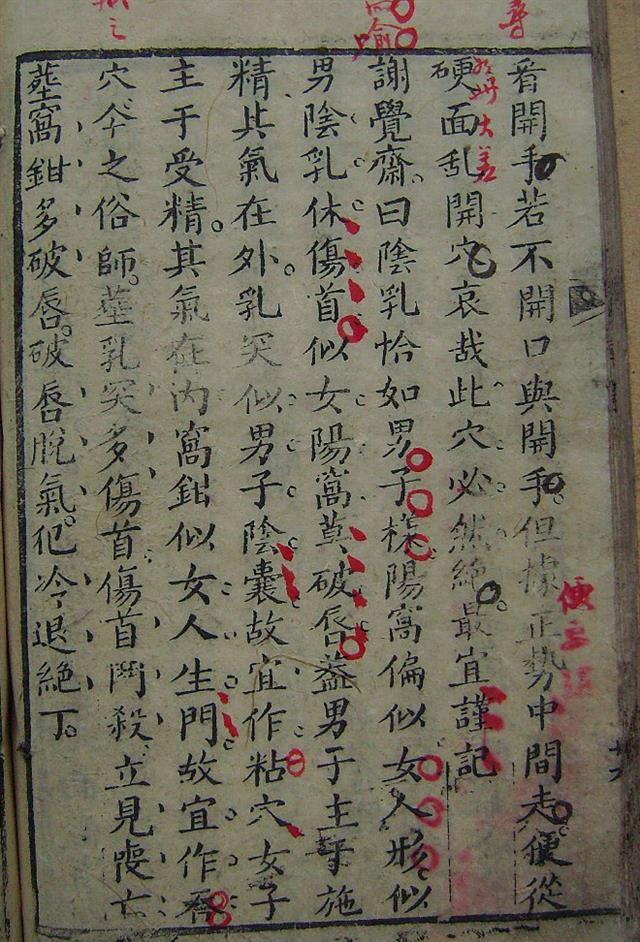 看開手若不開口與開手但據正勢中間走便從
硬面乱開穴哀哉此穴必然絶最宜謹記
謝覺齋曰陰乳恰如男子樣陽窩偏似女人形似
男陰乳休傷首似女陽窩莫破唇蓋男子主于施
精其氣在外乳突似男子陰囊故宜作粘穴女子
主于受精其氣在内窩鉗似女人生門故宜作
穴今之俗師塟乳突多傷首傷首鬥殺立見喪亡
塟窩鉗多破唇破唇脫氣犯冷退絶丁